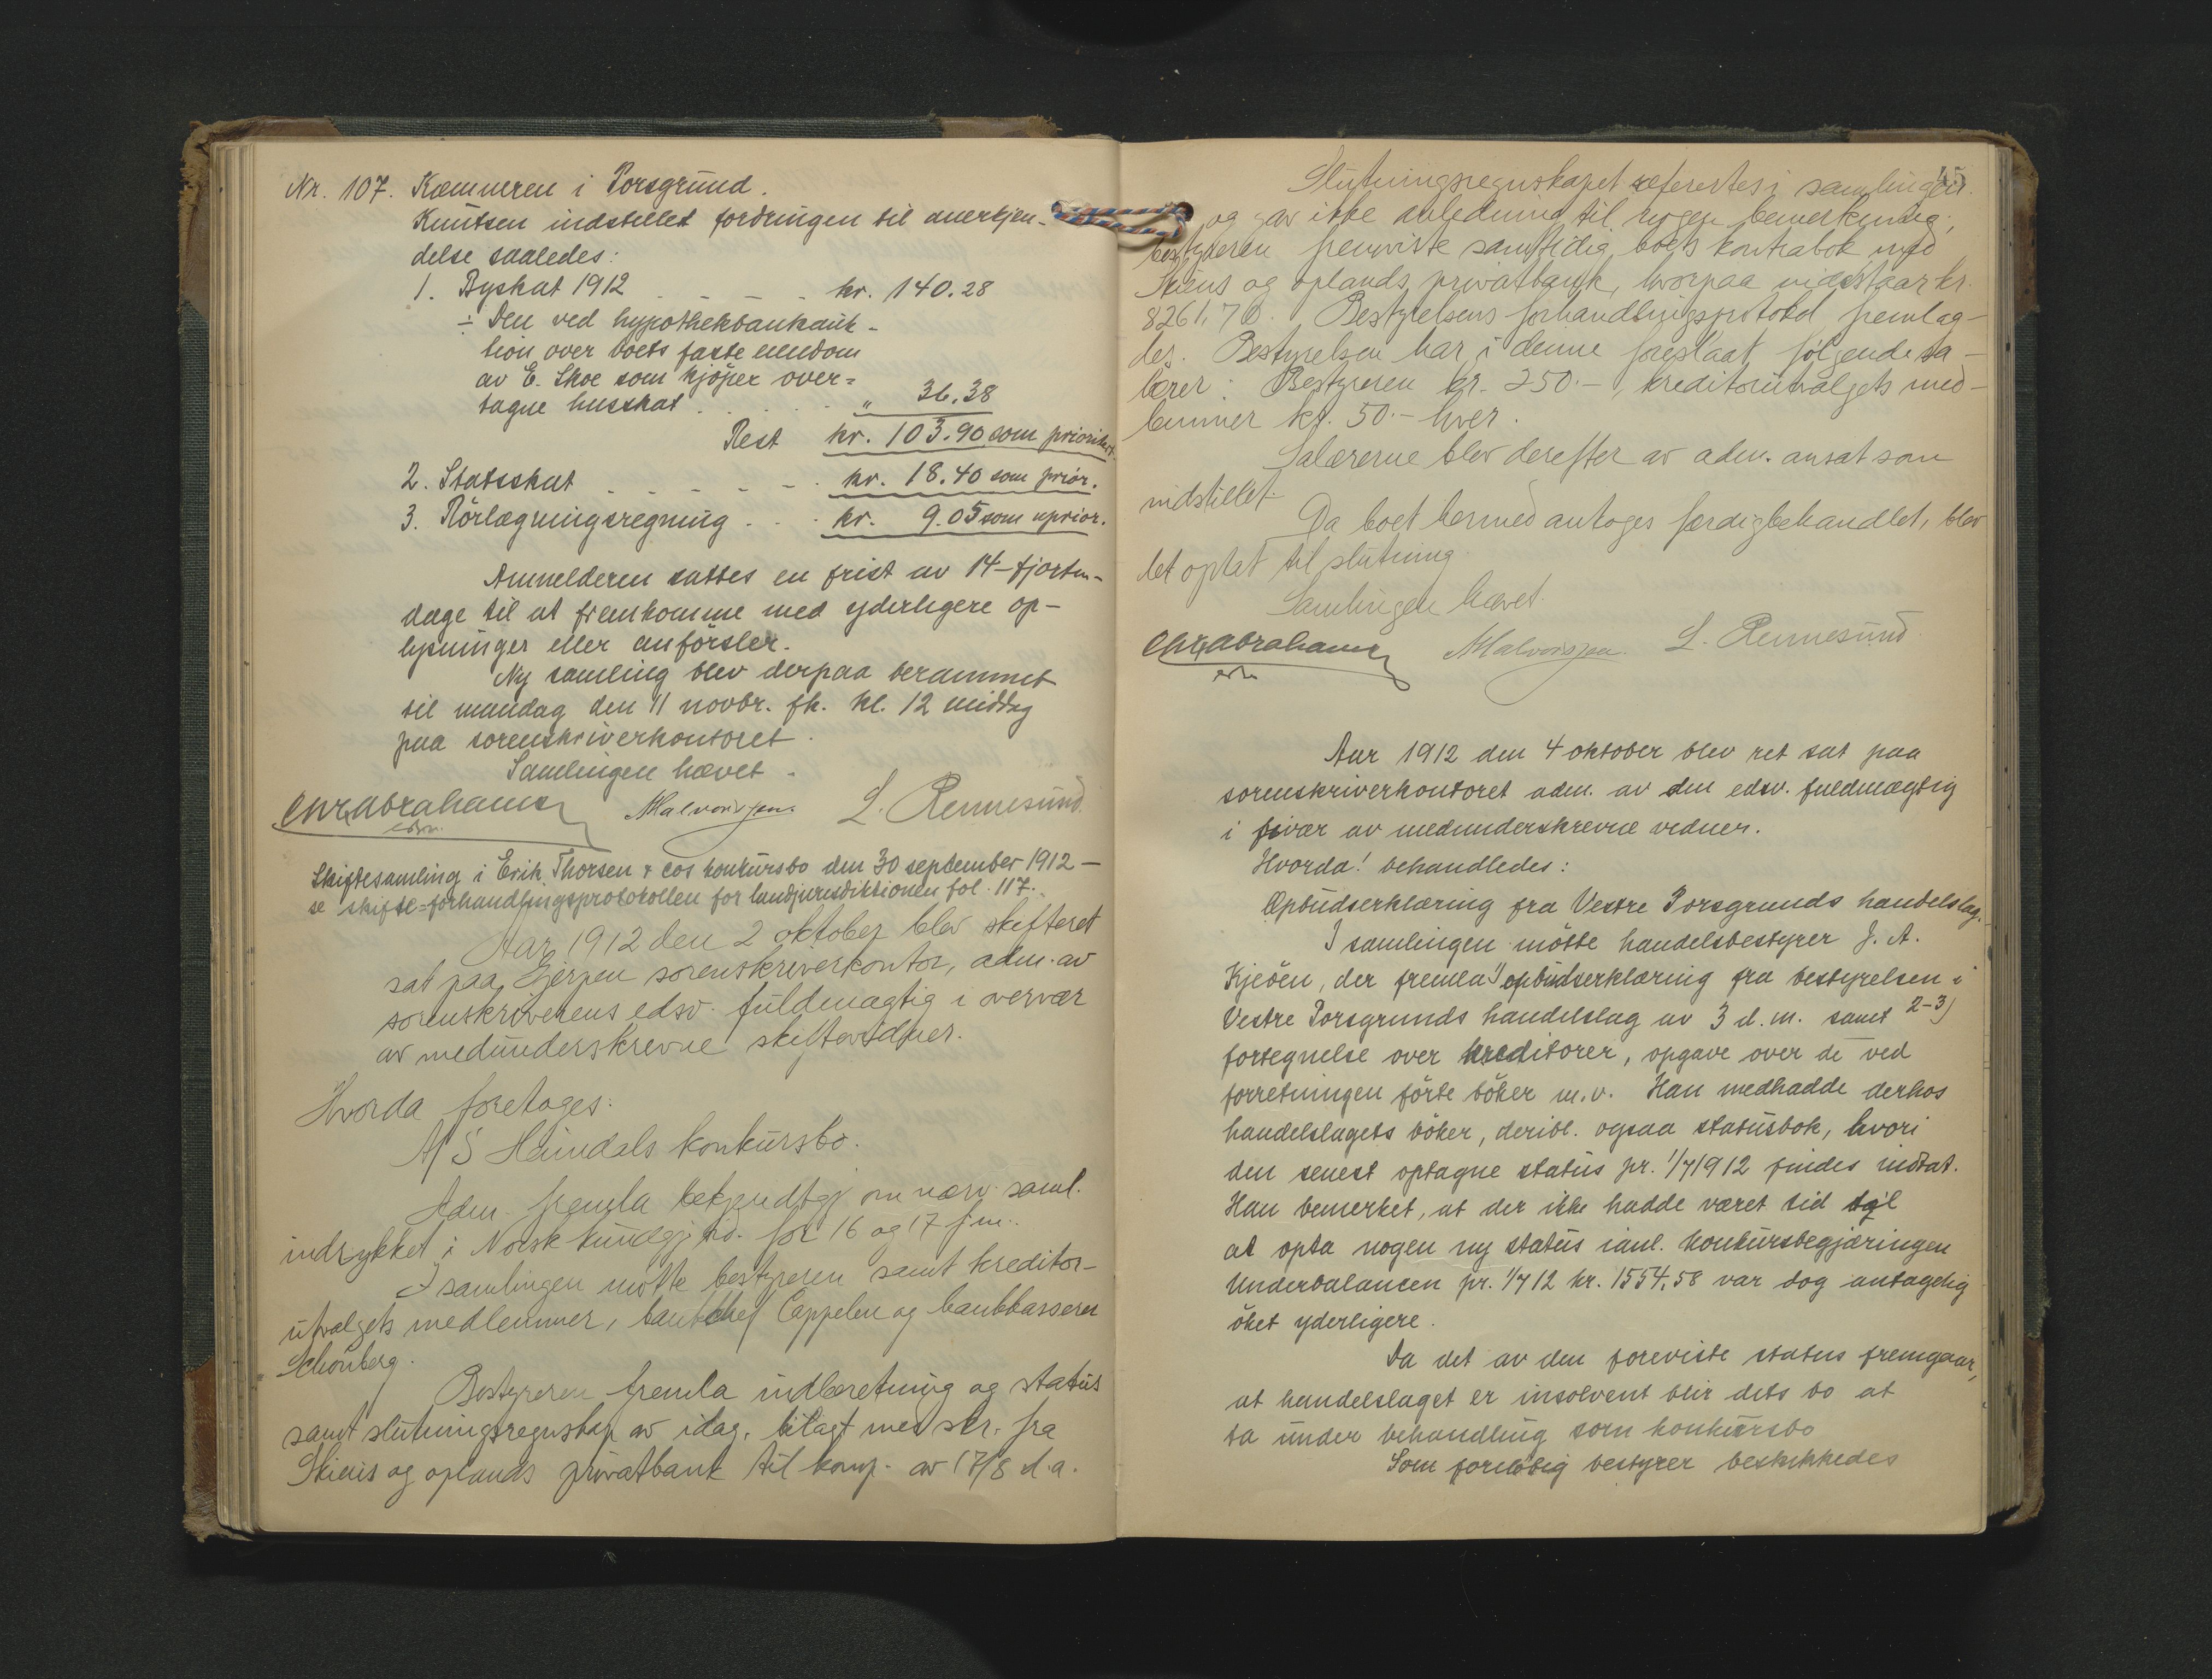 Nr. 107. Kæmneren i Porsgrund.
Knutsen indstillet fordringen til anerkjen-
delse saaledes:
1. Byskat 1912 . - - - . kr. 140.28
÷ Den ved hypothekbankauk-
tion over boets faste eiendom
av E. Skoe som kjøper over-
tagne husskat . . . . . " 36.38
Rest kr. 103.90 som prioritert.
2. Statsskat - - - - - . kr. 18.40 som prior.
3. Rörlægningsregning . - . kr. 9.05 som uprior.
Anmelderen sattes en frist av 14-fjorten-
dage til at fremkomme med yderligere op-
lysninger eller anförsler.
Ny samling blev derpaa berammet
til mandag den 11 novbr. fk. kl. 12 middag
paa sorenskriverkontoret.
Samlingen hævet.
Chr Abrahams MHalvorsen. L. Rennesund.
edsv.
Skiftesamling i Erik Thorsen & cos konkursbo den 30 september 1912 -
se skifte-forhandlingsprotokollen for landjurisdiktionen fol. 117.
Aar 1912 den 2 oktober blev skifteret
sat paa Gjerpen sorenskriverkontor, adm. av
sorenskriverens edsv. fuldmægtig i overvær
av medunderskrevne skiftevidner.
Hvorda foretoges:
A/S Heimdals konkursbo.
Adm. fremla bekjendtgj. om nærv. saml.
indrykket i Norsk Kundgj.tid. for 16 og 17 f.m.
I samlingen møtte bestyreren samt kreditor-
utvalgets medlemmer, bankchef Cappelen og bankkasserer
Schönberg.
Bestyreren fremla indberetning og status
samt slutningsregnskap av idag, bilagt med skr. fra
Skiens og oplands privatbank til komp. av 17/8 d.a.
45
Slutningsregnskapet refertes i samlingen.
og gav ikke anledning til nogen bemerkning;
bestyreren fremviste samtidig boets kontrabok med
Skiens og oplands privatbank, hvorpaa indestaar kr.
8261,76. Bestyrelsens forhandlingsprotokol fremlag-
des. Bestyrelsen har i denne foreslaat følgende sa-
lærer: Bestyreren kr. 250.-, kreditorutvalgets med-
lemmer kr. 50.- hver.
Salærerne blev derefter av adm. ansat som
indstillet.
Da boet hermed antoges færdigbehandlet, blev
det optat til slutning.
Samlingen hævet.
Chr Abrahams MHalvorsen. L. Rennesund.
edsv.
Aar 1912 den 4 oktober blev ret sat paa
sorenskriverkontoret adm. av den edsv. fuldmægtig
i overvær av medunderskrevne vidner.
Hvorda! behandledes:
Opbudserklæring fra Vestre Porsgrunds handelslag.
I samlingen mötte handelsbestyrer J. A.
Kjeöen, der fremla 1) opbudserklæring fra bestyrelsen i
Vestre Porsgrunds handelslag av 3 d.m. samt 2-3)
fortegnelse over kreditorer, opgave over de ved
forretningen förte böker m.v. Han medhadde derhos
handelslagets böker, deribl. ogsaa statusbok, hvori
den senest optagne status pr. 1/7 1912 findes indtat.
Han bemerket, at der ikke hadde været tid til
at opta nogen ny status ianl. konkursbegjæringen
Underbalancen pr. 1/7 12 kr. 1554,58 var dog antagelig
öket yderligere.
Da det av den foreviste status fremgaar,
at handelslaget er insolvent blir dets bo at
ta under behandling som konkursbo
Som forelöbig bestyrer beskikkedes